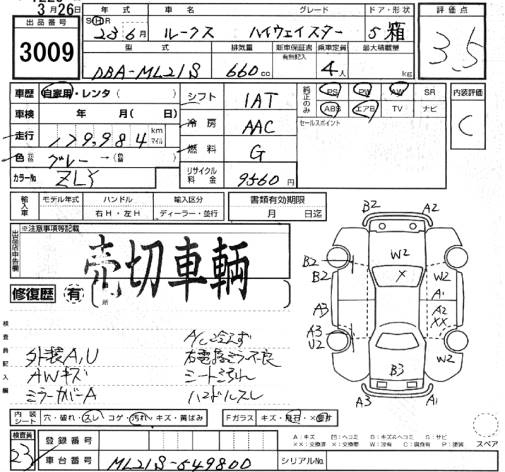 3月26日
出品番号
3009
年式 車名 グレード ドア・形状 評価点
SH 23 6月 ルークス ハイウェイスター 5 箱 3.5
型式 排気量 新車保証書 乗車定員 最大積載量
有無記入
DBA-ML21S 660cc 4人 kg
車歴 自家用・レンタ( )
シフト IAT
純正のみ PS PW AW SR
ABS エアB TV ナビ
内装評価 C
車検 年 月( 日)
冷房 AAC
セールスポイント
走行 179,984 km マイル
燃料 G
色 元色 グレー → 色替( )
リサイクル料金 9560円
カラーNo ZLY
輸入車 モデル年式 ハンドル 輸入区分
右H・左H ディーラー・並行
書類有効期限
月 日迄
出品店申告欄 ※注意事項等記載
売切車輌
修復歴 有
箇所
検査員記入欄
A/C冷えず
外装A,U
右電格ミラー不良
AWキズ
ミラーカバーA
ハンドルスレ
B2 A2
B2 W2 W2
B2 X
A1
A3 A2
XX
A3
U2 W2
B3
A3 A1
内装シート 穴・破れ・スレ・コゲ・汚れ・キズ・黄ばみ
Fガラス キズ・飛石・×
A:キズ U:ヘコミ B:キズ&ヘコミ S:サビ
XX:交換済 X:要交換 W:波 C:腐食 P:塗装
スペア
検査員 23
登録番号
車台番号 ML21S-549800
シリアルNo.